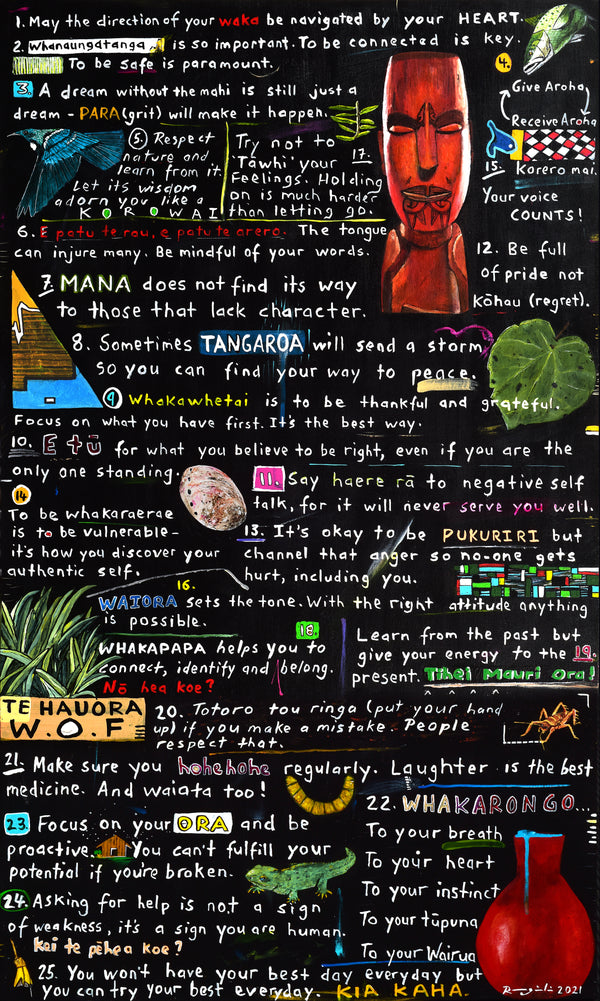 1. May the direction of your waka be navigated by your HEART.
2. Whanaungatanga is so important. To be connected is key.
To be safe is paramount.
3. A dream without the mahi is still just a
dream - PARA (grit) will make it happen.
4.
Give Aroha
Receive Aroha
5. Respect
nature and
learn from it.
Let its wisdom
adorn you like a
KOROWAI
Try not to
Tāwhi your 17.
Feelings. Holding
on is much harder
than letting go.
15. Kōrero mai.
Your voice
COUNTS!
6. E patu te rau, e patu te arero. The tongue
can injure many. Be mindful of your words.
12. Be full
of pride not
Kōhau (regret).
7. MANA does not find its way
to those that lack character.
8. Sometimes TANGAROA will send a storm
so you can find your way to peace.
9 Whakawhetai is to be thankful and grateful.
Focus on what you have first. It's the best way.
10. E tū for what you believe to be right, even if you are the
only one standing.
11. Say haere rā to negative self
talk, for it will never serve you well.
14
To be whakaraerae
is to be vulnerable -
it's how you discover your
authentic self.
13. It's okay to be PUKURIRI but
channel that anger so no-one gets
hurt, including you.
16.
WAIORA sets the tone. With the right attitude anything
is possible.
18.
WHAKAPAPA helps you to
connect, identify and belong.
Nō hea koe?
Learn from the past but
give your energy to the 19.
present. Tihei Mauri Ora!
TE HAUORA
W.O.F
20. Totoro tou ringa (put your hand
up) if you make a mistake. People
respect that.
21. Make sure you hohehohe regularly. Laughter is the best
medicine. And waiata too!
22. WHAKARONGO...
To your breath
To your heart
To your instinct
To your tūpuna
To your Wairua
23. Focus on your ORA and be
proactive. You can't fulfill your
potential if you're broken.
24. Asking for help is not a sign
of weakness, it's a sign you are human.
kei te pēhea koe?
25. You won't have your best day everyday but
you can try your best everyday. KIA KAHA.
2021